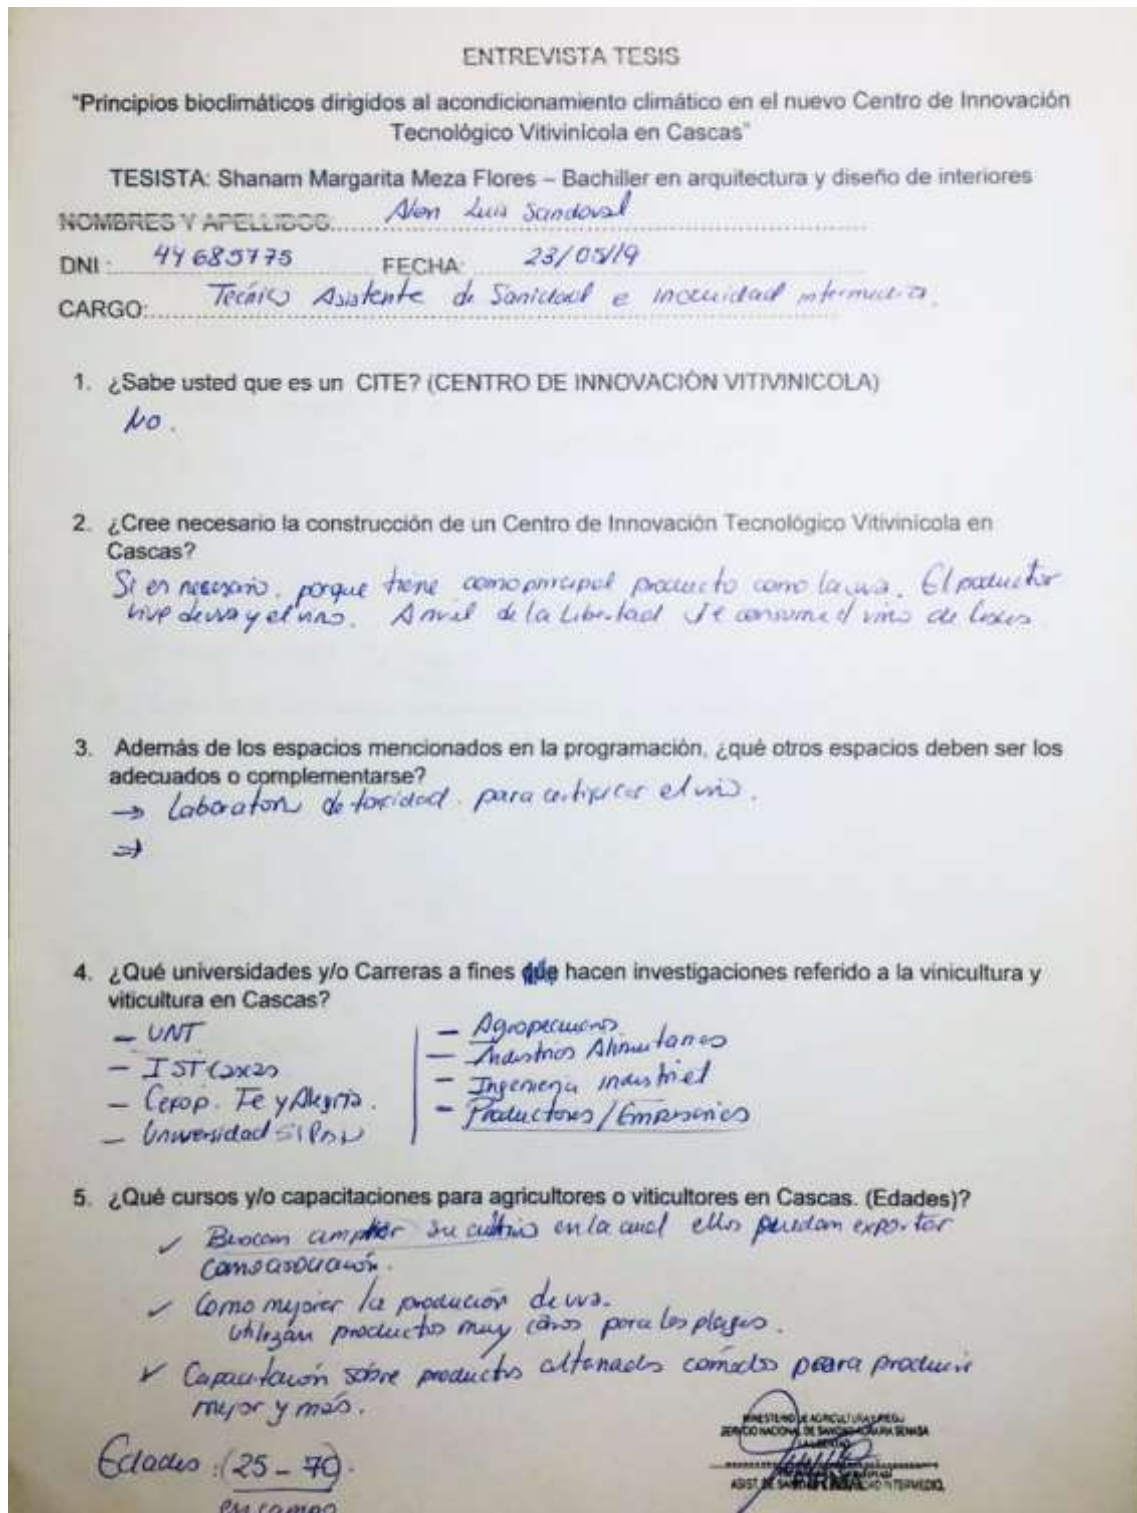 ENTREVISTA TESIS
"Principios bioclimáticos dirigidos al acondicionamiento climático en el nuevo Centro de Innovación
Tecnológico Vitivinícola en Cascas"
TESISTA: Shanam Margarita Meza Flores – Bachiller en arquitectura y diseño de interiores
NOMBRES Y APELLIDOS: Luis Sandoval
DNI: 44685775 FECHA: 23/05/19
CARGO: Tecnico Asistente de Sanidad e inocuidad intermedia.
1. ¿Sabe usted que es un CITE? (CENTRO DE INNOVACIÓN VITIVINICOLA)
No.
2. ¿Cree necesario la construcción de un Centro de Innovación Tecnológico Vitivinícola en
Cascas?
Si es necesario, porque tiene como principal producto como la uva. El productor
vive de uva y el vino. A nivel de la Libertad se consume el vino de
3. Además de los espacios mencionados en la programación, ¿qué otros espacios deben ser los
adecuados o complementarse?
→ Laboratorio de toxicidad para certificar el vino.
⇒
4. ¿Qué universidades y/o Carreras a fines que hacen investigaciones referido a la vinicultura y
viticultura en Cascas?
– UNT
– IST Cascas
– Cefop. Fe y Alegría.
– Universidad SIPAN
– Agropecuaria
– Industrias Alimentarias
– Ingenieria industrial
– Productores / Empresarios
5. ¿Qué cursos y/o capacitaciones para agricultores o viticultores en Cascas. (Edades)?
✓ Buscan ampliar su cultivo en la cual ellos puedan exportar
como asociación.
✓ Como mejorar la produción de uva.
utilizan productos muy caros para las plagas.
✓ Capacitación sobre productos para producir
mejor y más.
Edades: (25 – 70).
en campo
MINISTERIO DE AGRICULTURA Y RIEGO
SERVICIO NACIONAL DE SANIDAD AGRARIA SENASA
LA LIBERTAD
FIRMA
ASIST. DE INTERMEDIO.